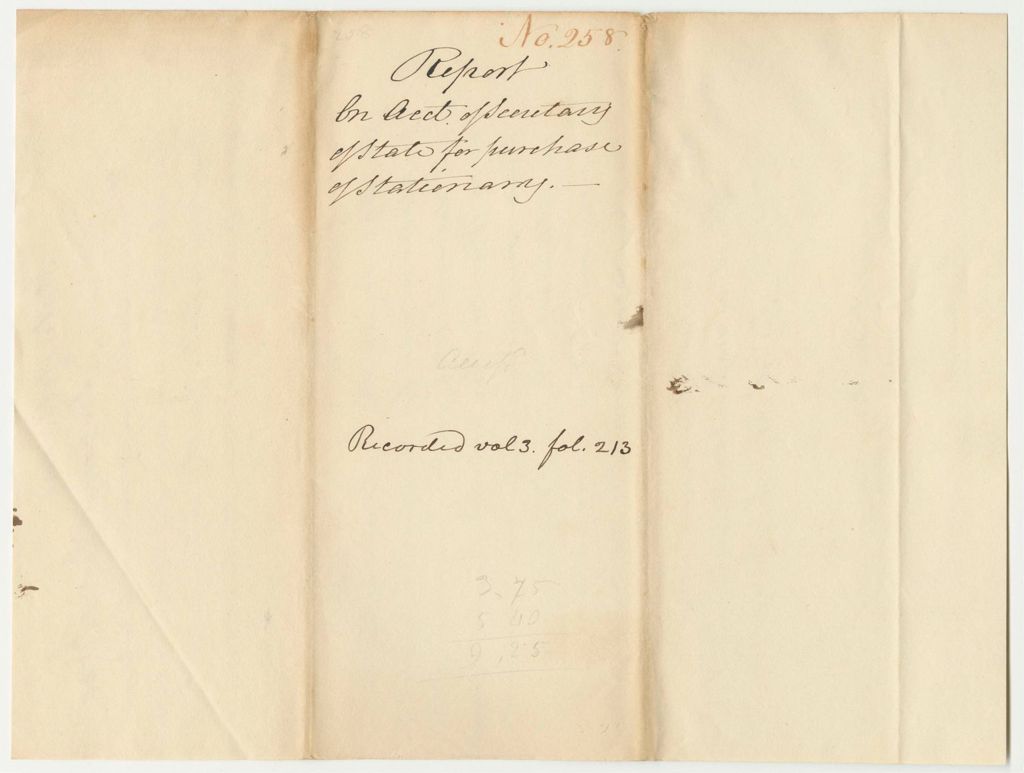 No. 258.
Report
On Acct. of Secretary
of State for purchase
of Stationary. —
Recorded vol 3. fol. 213
3,75
5 40
9,25